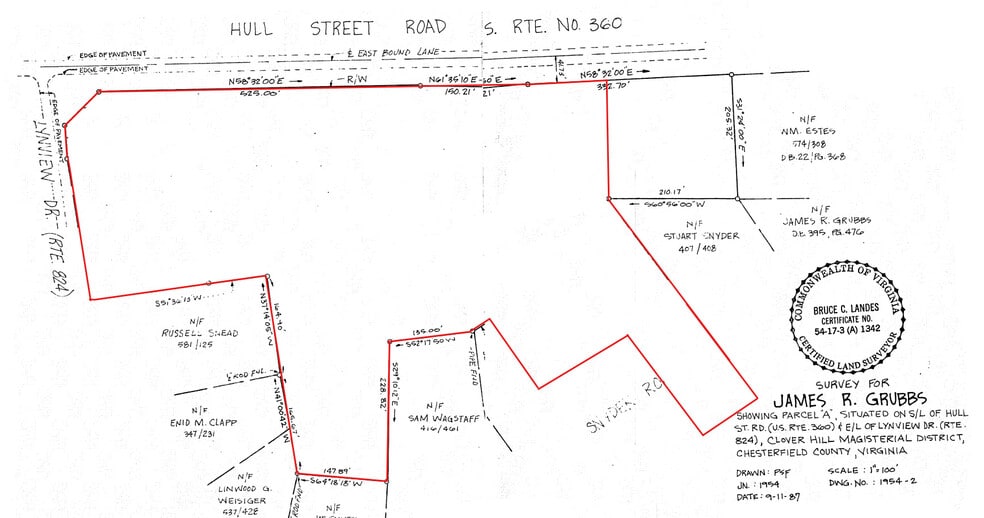 HULL STREET ROAD S. RTE. NO. 360
EDGE OF PAVEMENT
EDGE OF PAVEMENT
℄ EAST BOUND LANE
N58°32'00"E
R/W
525.00'
N61°35'10"E
150.21'
N58°32'00"E
332.70'
EDGE OF PAVEMENT
LYNVIEW DR. (RTE. 824)
S31°24'00"E
205.32'
N/F
N.M. ESTES
574/308
D.B.22/PG.368
210.17'
S60°56'00"W
N/F
STUART SNYDER
407/408
N/F
JAMES R. GRUBBS
D.B. 395, PG. 476
N/F
RUSSELL SNEAD
581/125
164.70'
N37°14'05"W
135.00'
S52°17'50"W
PIPE FND
228.82'
S29°10'12"E
N/F
SAM WAGSTAFF
416/461
N/F
ENID M. CLAPP
347/231
N41°00'42"W
165.67'
147.89'
S64°18'18"W
N/F
LINWOOD G.
WEISIGER
537/428
ROD FND
N/F
SNYDER RD
COMMONWEALTH OF VIRGINIA
BRUCE C. LANDES
CERTIFICATE NO.
54-17-3 (A) 1342
CERTIFIED LAND SURVEYOR
SURVEY FOR
JAMES R. GRUBBS
SHOWING PARCEL "A", SITUATED ON S/L OF HULL
ST. RD. (U.S. RTE. 360) & E/L OF LYNVIEW DR. (RTE.
824), CLOVER HILL MAGISTERIAL DISTRICT,
CHESTERFIELD COUNTY, VIRGINIA
DRAWN: PSF SCALE: 1"=100'
JN.: 1954 DWG. NO.: 1954-2
DATE: 9-11-87